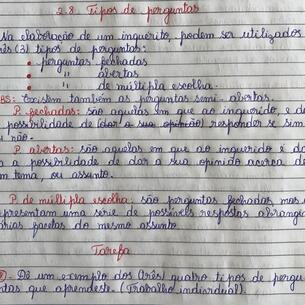 2.8 Tipos de perguntas
Na elaboração de um inquérito, podem ser utilizados
três (3) tipos de perguntas:
• perguntas fechadas
• " abertas
• " de múltipla escolha.
BS: Existem também as perguntas semi-abertas.
P. fechadas: são aquelas em que ao inquerido, é da
possibilidade de (dar a sua opinião) responder se sim
ou não.
P. abertas: são aquelas em que ao inquerido é da
a possibilidade de dar a sua opinião acerca de
um tema, ou assunto.
P. de múltipla escolha: são perguntas fechadas, mas
apresentam uma serie de possíveis respostas abrange
várias facetas do mesmo assunto
Tarefa
Dê um exemplo dos (três) quatro tipos de pergu
ntas que aprendeste. (Trabalho individual).